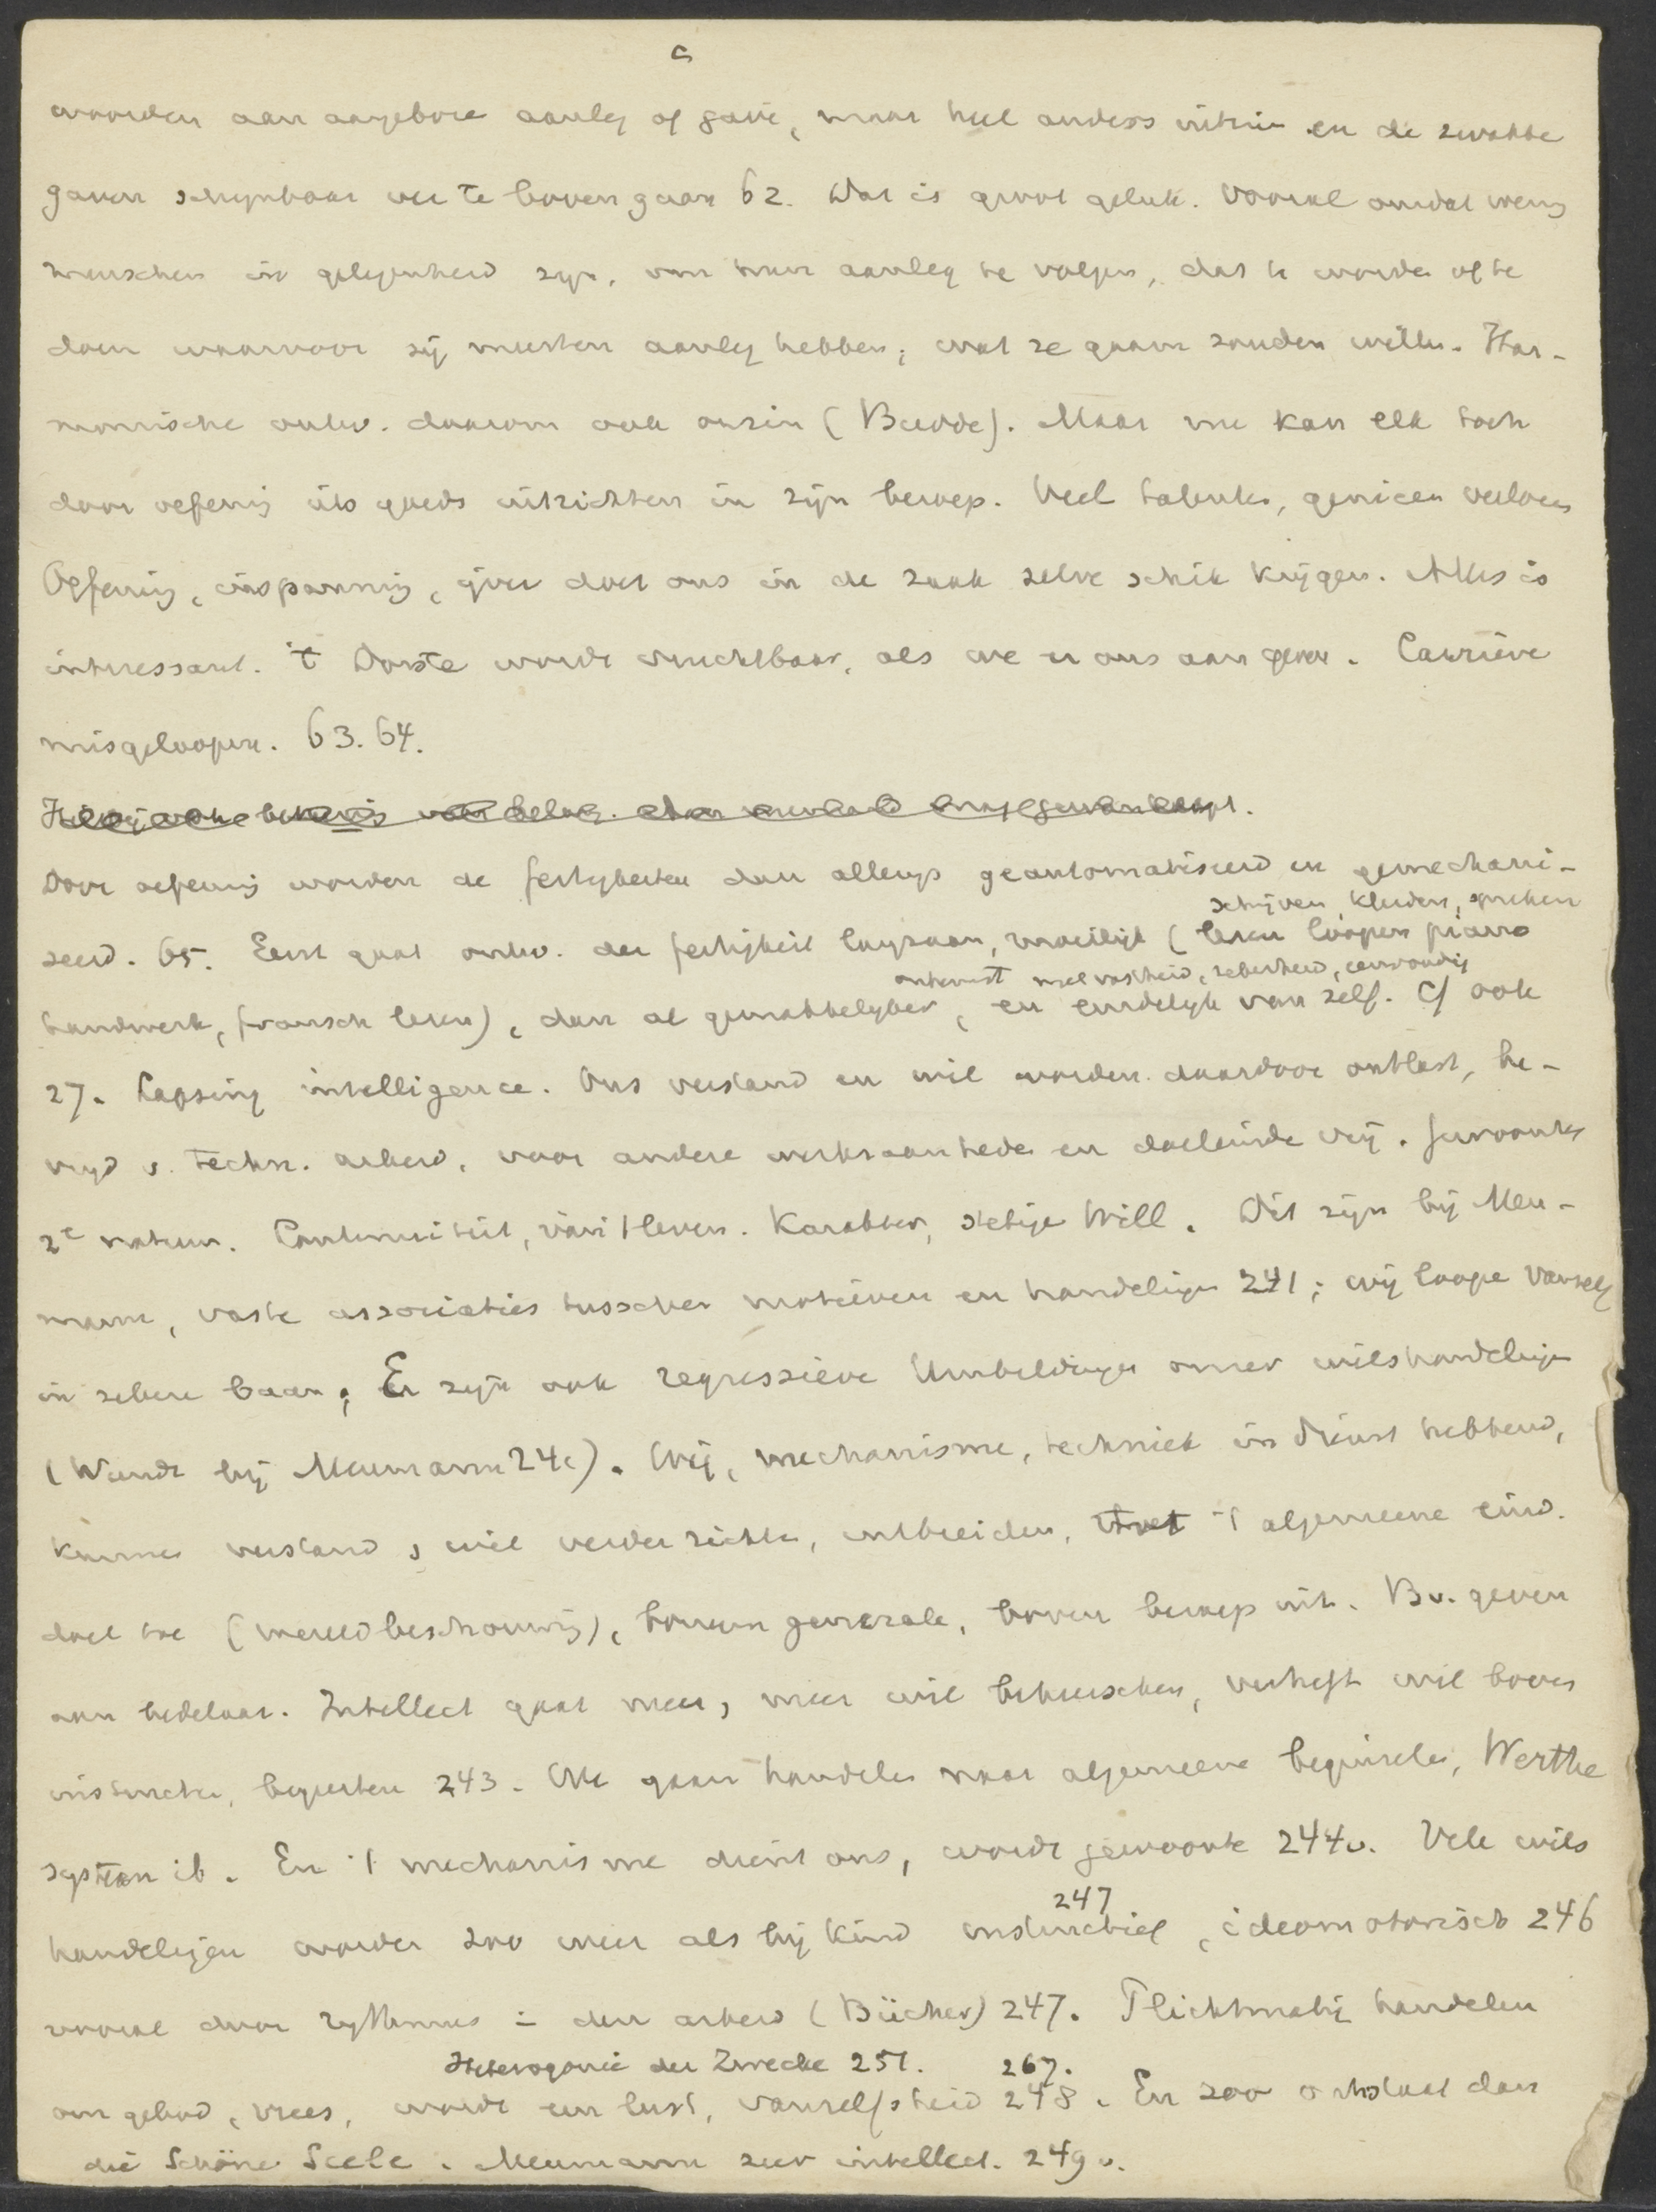 c
worden aan aangebore aanleg of gave, maar heel anders uitzien en de zwakke
gaven schynbaar ver te boven gaan 62. Dat is groot geluk. Vooral omdat weinig
menschen in gelegenheid zyn, om hun aanleg te volgen, dat te worden of te
doen waarvoor zij meesten aanleg hebben, wat ze gaarn zouden willen. Har-
monische ontw. daarom ook onzin (Budde). Maar me kan elk toch
door oefening iets goeds uitrichten in zijn beroep. Veel talenten, genieen verloren
Oefening, inspanning, ijver doet ons in de zaak zelve schik krijgen. Alles is
interessant. 't Dorste wordt vruchtbaar, als we er ons aan geven. Carrière
misgeloopen. 63. 64.
Door oefening worden de fertigheiten dan allengs geautomatiseerd en gemechani-
schrijven, kleeden, spreken
seerd. 65. Eerst gaat ontw. der fertigkeit langzaam, moeilijk (leren loopen piano
onbewust met vastheid, zekerheid, eenvoudig
handwerk, fransch leren), dan al gemakkelyker, en eindelyk van zelf. Cf ook
27. Lapsing intelligence. Ons verstand en wil worden daardoor ontlast, be-
vryd v. techn. arbeid, voor andere werkzaamheden en doeleinde vrij. Gewoonte
2e natuur. Continuiteit, van 't leven. Karakter, stetige Will. Dit zijn bij Meu-
mann, vaste associaties tusschen motieven en handelingen 241; wij loope vanzelf
in zekere baan; Er zijn ook regressieve Umbildungen onzer wilshandelingen
(Wundt bij Meumann 24c). Wij, mechanisme, techniek in dienst hebbend,
kunnen verstand, wil verder richten, uitbreiden, 't algemeene eind.
doel toe (wereldbeschouwing), bonum generale, boven beroep uit. Bv. geven
aan bedelaar. Intellect gaat meer, meer wil beheerschen, verheft wil boven
instincten, begeerten 243. We gaan handelen naar algemeene beginselen, Werthe
system ib. En 't mechanisme dient ons, wordt gewoonte 244v. Vele wils
247
handelingen worden zoo weer als bij kind instinctief, ideomotorisch 246
vooral door rythmus in den arbeid (Bücher) 247. Plichtmatig handelen
Heterogonie der Zwecke 251. 267.
om gebod, vrees, wordt een lust, vanzelfsheid 248. En zoo ontstaat dan
die Schöne Seele. Meumann zeer intellect. 249v.